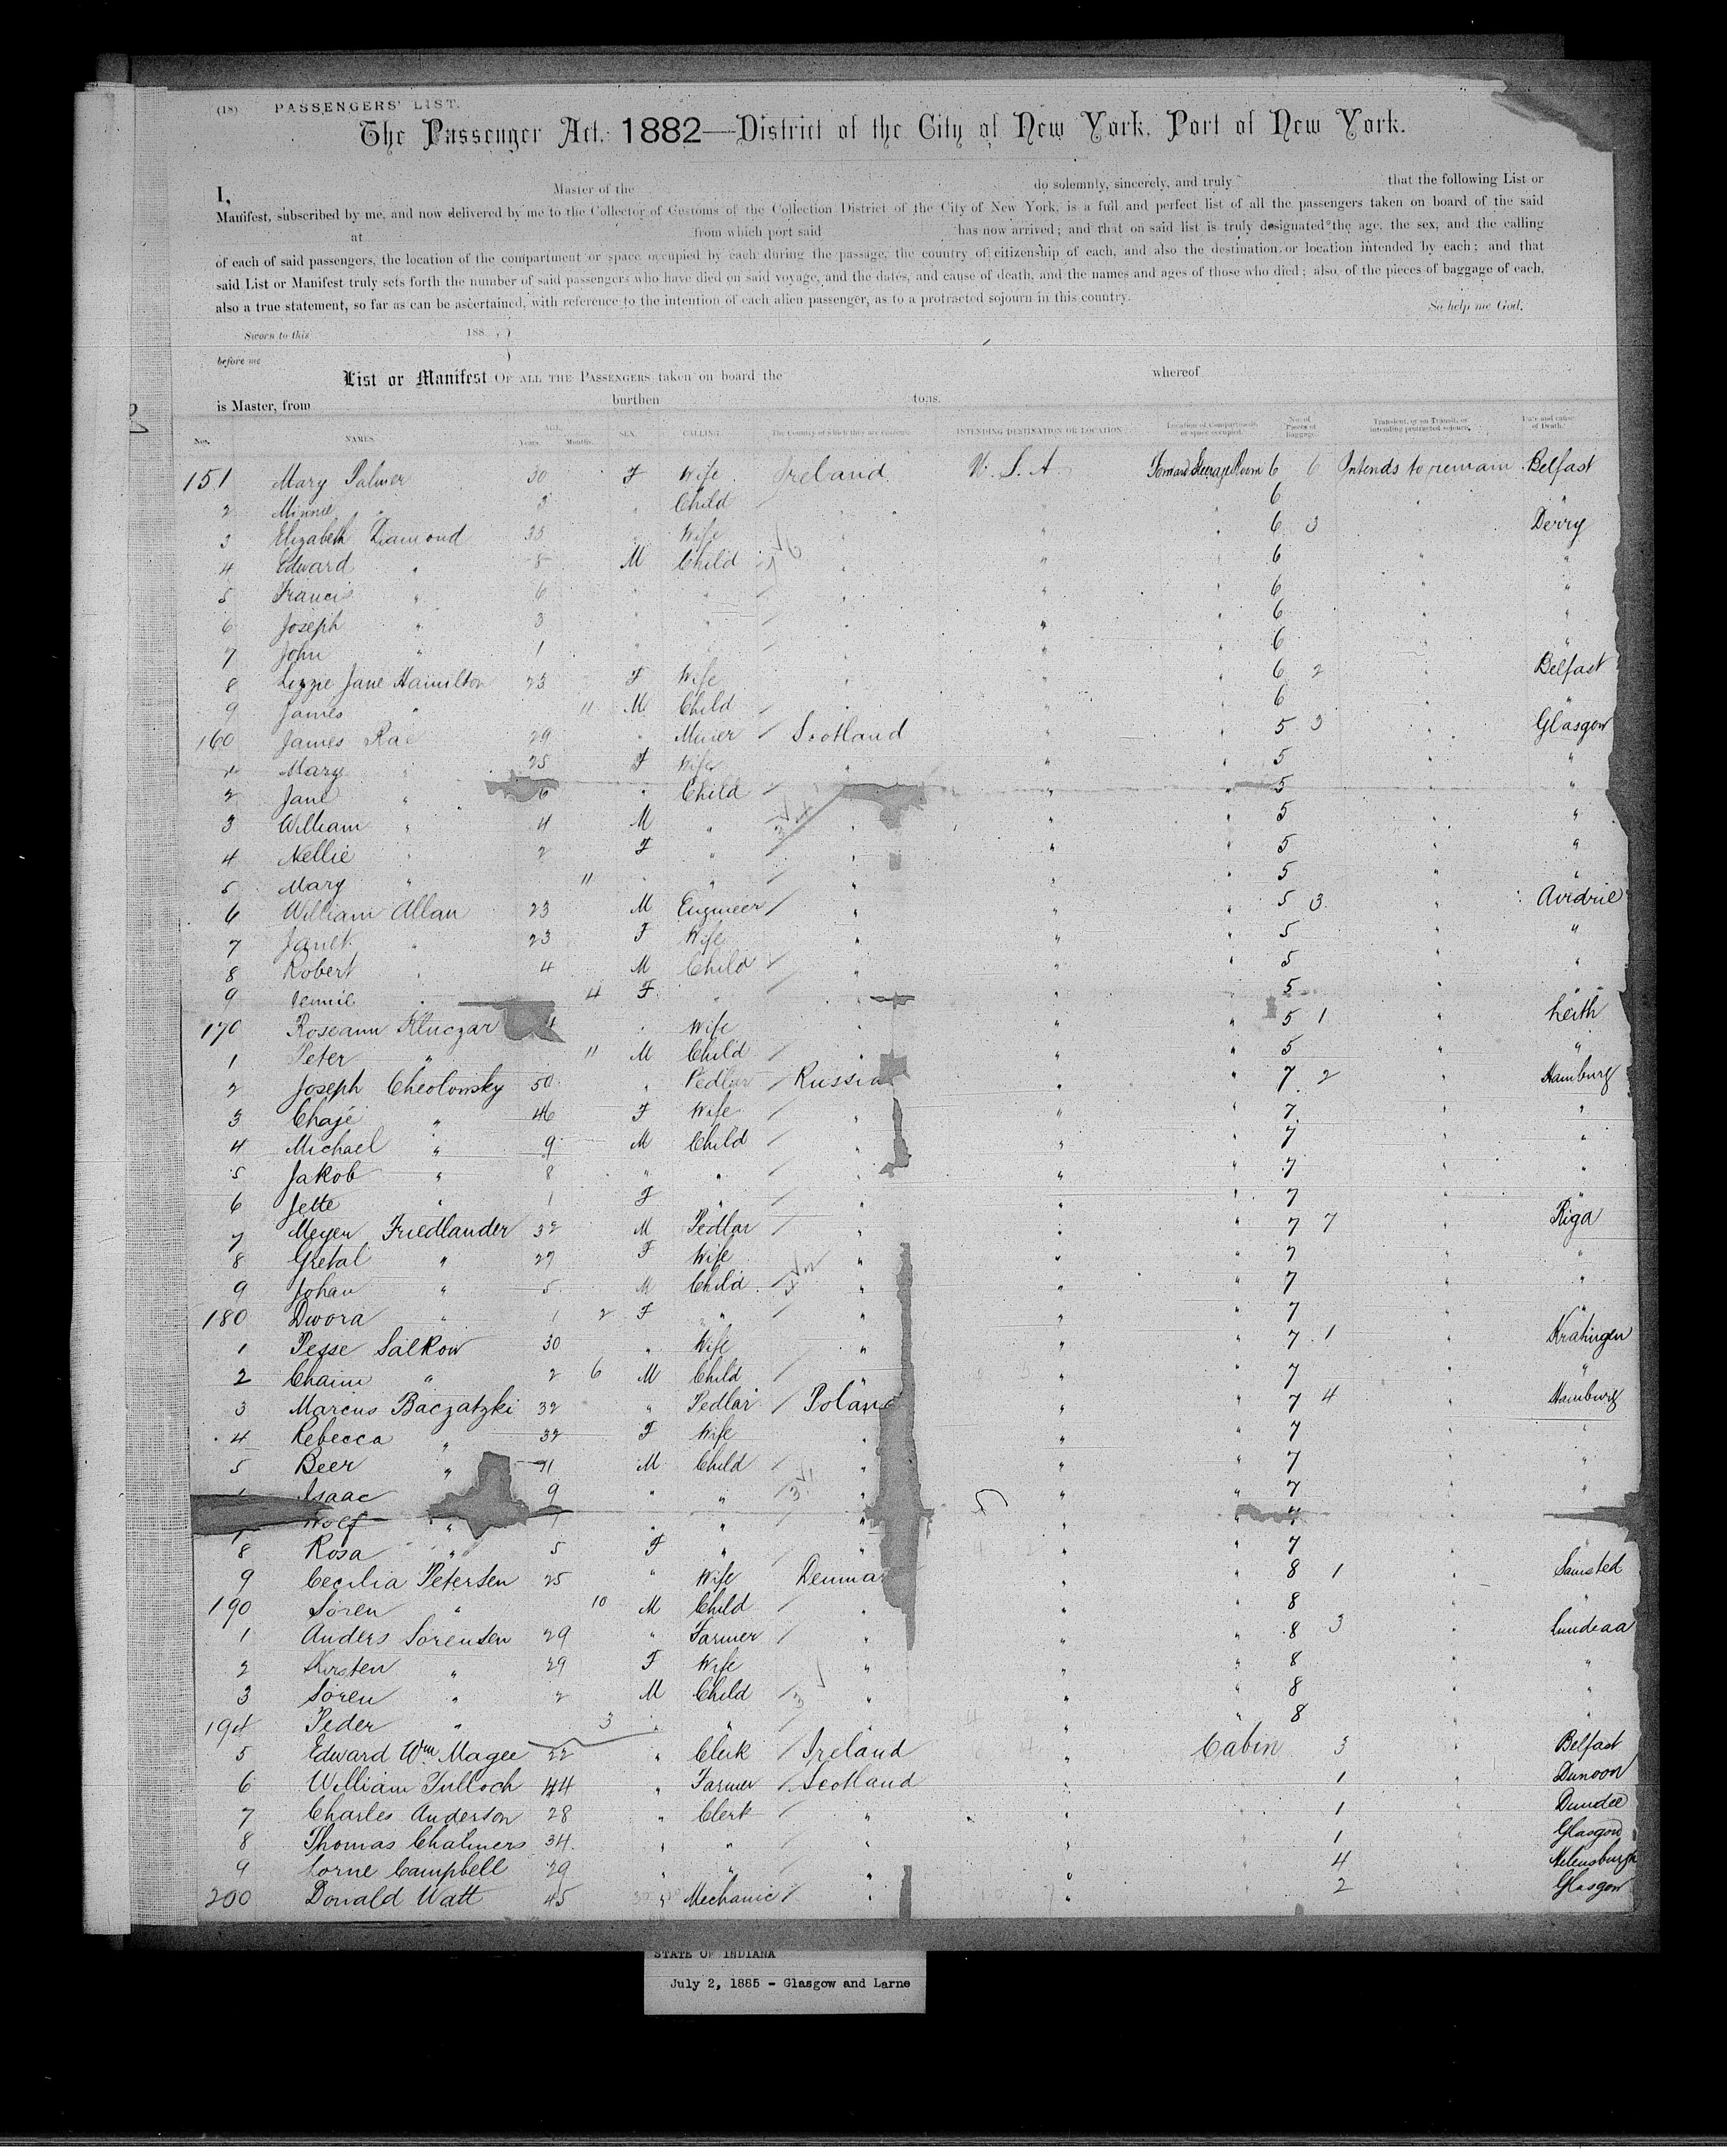 (18) PASSENGERS' LIST.
The Passenger Act, 1882—District of the City of New York, Port of New York.
I, Master of the do solemnly, sincerely, and truly that the following List or
Manifest, subscribed by me, and now delivered by me to the Collector of Customs of the Collection District of the City of New York, is a full and perfect list of all the passengers taken on board of the said
at from which port said has now arrived; and that on said list is truly designated the age, the sex, and the calling
of each of said passengers, the location of the compartment or space occupied by each during the passage, the country of citizenship of each, and also the destination or location intended by each; and that
said List or Manifest truly sets forth the number of said passengers who have died on said voyage, and the dates, and cause of death, and the names and ages of those who died; also, of the pieces of baggage of each,
also a true statement, so far as can be ascertained, with reference to the intention of each alien passenger, as to a protracted sojourn in this country. So help me God.
Sworn to this 188 , }
before me
List or Manifest OF ALL THE PASSENGERS taken on board the whereof
is Master, from burthen tons.
Nos. NAMES. AGE. Years. Months. SEX. CALLING. The Country of which they are citizens. INTENDING DESTINATION OR LOCATION. Location of Compartment or space occupied. No. of Pieces of Baggage. Transient, or in Transit, or intending protracted sojourn. Date and cause of Death.
151 Mary Palmer 30 F Wife Ireland U. S. A. Forward Steerage Room 6 6 Intends to remain Belfast
2 Minnie " 3 " Child " " 6 " "
3 Elizabeth Diamond 35 " Wife " " 6 3 " Derry
4 Edward " 8 M Child " " 6 " "
5 Francis " 6 " " " " 6 " "
6 Joseph " 3 " " " " 6 " "
7 John " 1 " " " " 6 " "
8 Lizzie Jane Hamilton 23 F Wife " " 6 2 " Belfast
9 James " 11 M Child " " 6 " "
160 James Rae 29 " Miner Scotland " 5 3 " Glasgow
1 Mary " 25 F Wife " " 5 " "
2 Jane " 6 " Child " " 5 " "
3 William " 4 M " " " 5 " "
4 Nellie " 2 F " " " 5 " "
5 Mary " 11 " " " " 5 " "
6 William Allan 23 M Engineer " " 5 3 " Airdrie
7 Janet " 23 F Wife " " 5 " "
8 Robert " 4 M Child " " 5 " "
9 Jennie " 4 F " " " 5 " "
170 Roseann Kluczar " Wife " " 5 1 " Leith
1 Peter " 11 M Child " " 5 " "
2 Joseph Cheolowsky 50 " Pedlar Russia " 7 2 " Hamburg
3 Chaje " 46 F Wife " " 7 " "
4 Michael " 9 M Child " " 7 " "
5 Jakob " 8 " " " " 7 " "
6 Jette " 1 F " " " 7 " "
7 Meyer Friedlander 32 M Pedlar " " 7 7 " Riga
8 Gretal " 27 F Wife " " 7 " "
9 Johan " 5 M Child " " 7 " "
180 Dwora " 1 2 F " " " 7 " "
1 Pesse Salkow 30 " Wife " " 7 1 " Kratingen
2 Chaim " 2 6 M Child " " 7 " "
3 Marcus Baczatzki 32 " Pedlar Poland " 7 4 " Hamburg
4 Rebecca " 32 F Wife " " 7 " "
5 Beer " 11 M Child " " 7 " "
Isaac 9 " " " " 7 " "
Wolf " " " " " 7
8 Rosa " 5 F " " " 7 " "
9 Cecilia Petersen 25 " Wife Denma " 8 1 " Samsted
190 Sören " 10 M Child " " 8 " "
1 Anders Sorensen 29 " Farmer " " 8 3 " Lundeaa
2 Kirsten " 29 F Wife " " 8 " "
3 Sören " 2 M Child " " 8 " "
194 Peder " 3 " " " " 8 " "
5 Edward Wm Magee 22 " Clerk Ireland " Cabin 3 " Belfast
6 William Tulloch 44 " Farmer Scotland " 1 " Dunoon
7 Charles Anderson 28 " Clerk " " 1 " Dundee
8 Thomas Chalmers 34 " " " " 1 " Glasgow
9 Lorne Campbell 29 " " " " 4 " Helensburgh
200 Donald Watt 45 " Mechanic " " 2 " Glasgow
STATE OF INDIANA
July 2, 1885 - Glasgow and Larne